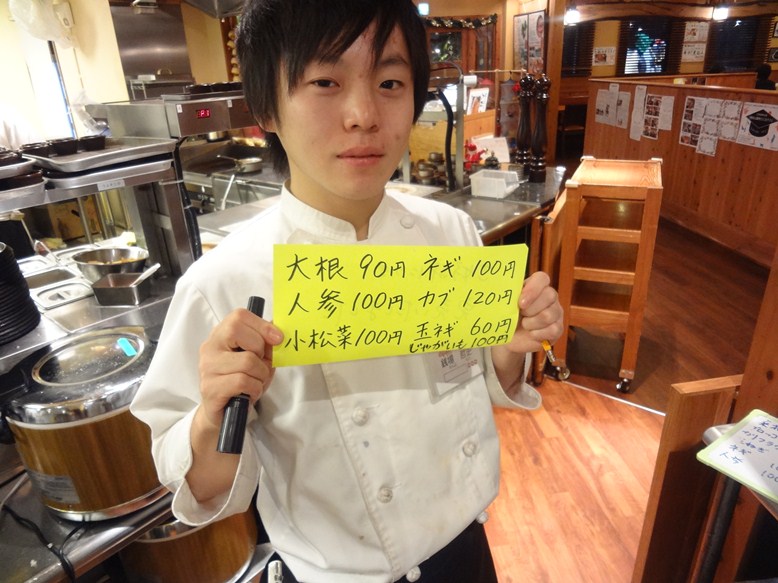 大根 90円 ネギ 100円
人参 100円 カブ 120円
小松菜 100円 玉ネギ 60円
じゃがいも 100円